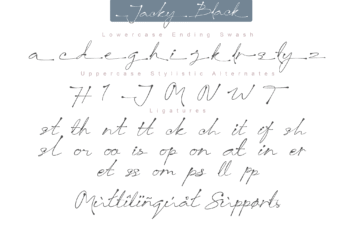 Jacky Black
Lowercase Ending Swash
a c d e g h i j k l r s t y z
Uppercase Stylistic Alternates
H I J M N W T
Ligatures
st th nt tt ck ch it ef sh
sl or oa is op on at in er
et ss om ps ll pp
Multilingual Supports